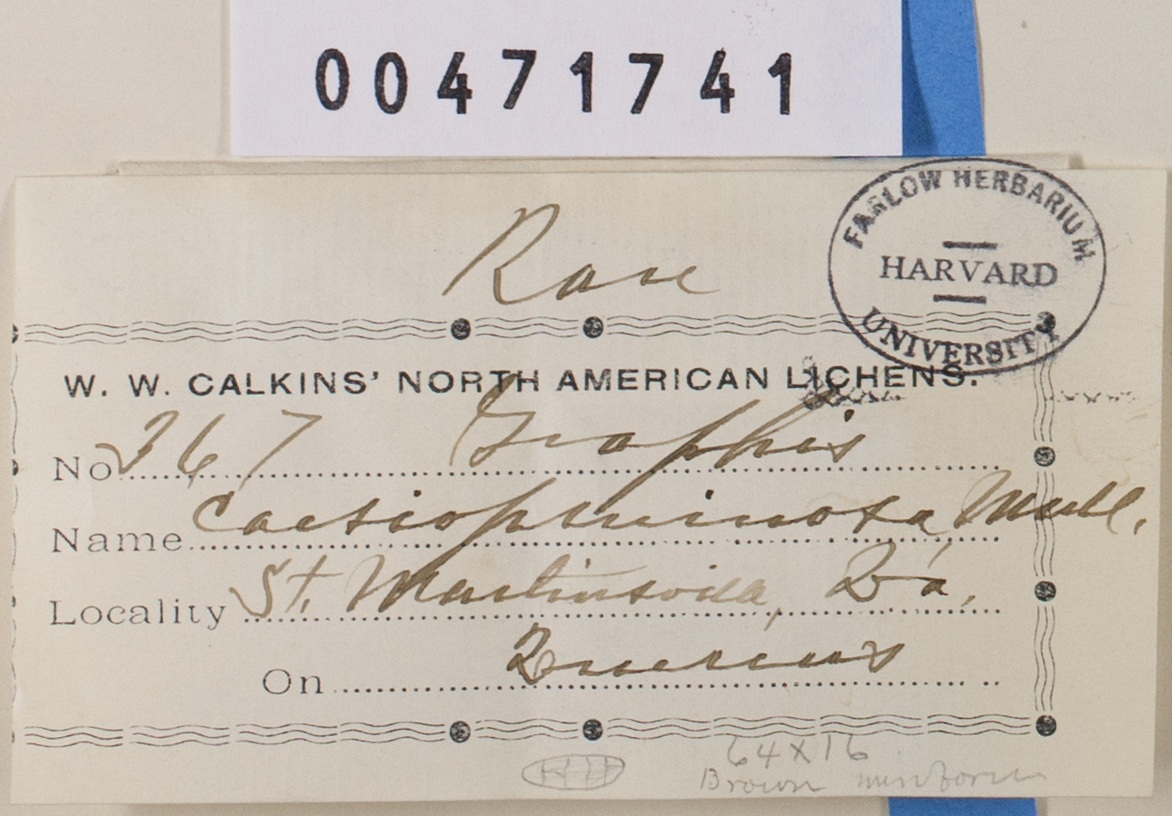 00471741
Rare
FARLOW HERBARIUM
HARVARD
UNIVERSITY
W. W. CALKINS' NORTH AMERICAN LICHENS.
No. 367 Graphis
Name Caesiopruinosa Mull.
Locality St. Martinsville, La.
On Quercus
64 X 16
Brown